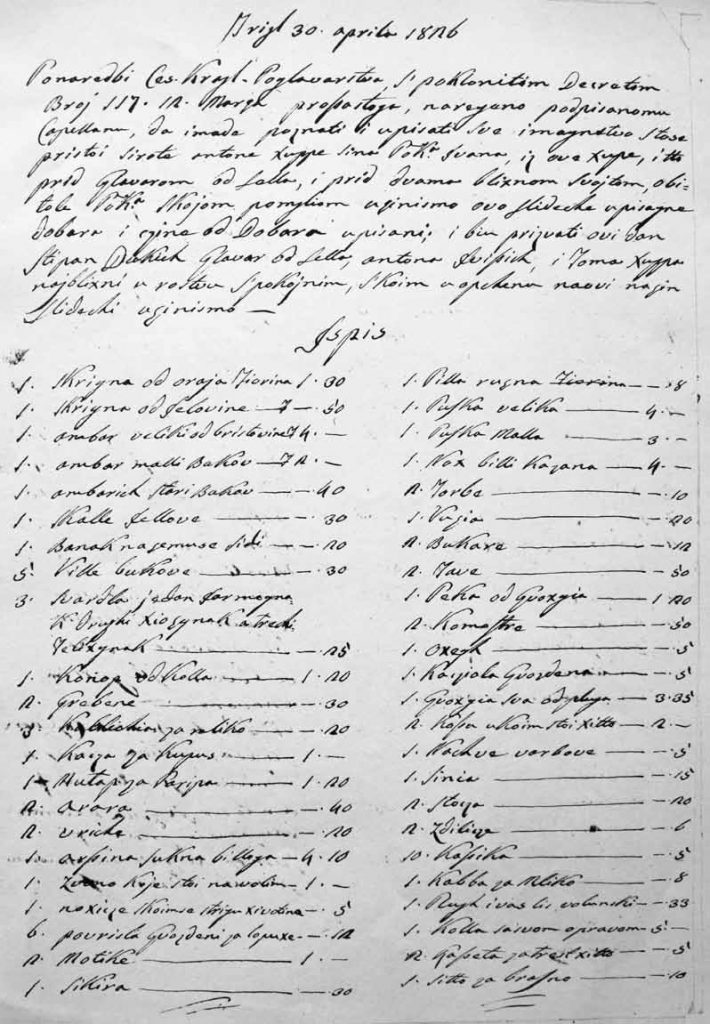 Trigl 30. aprila 1826
Ponaredbi Ces. Kragl. Poglavarstva, s'poklonitim Decretom
Broj 117. 12. Marça prossastoga, naregeno podpisanomu
Capellanu, da imade poznati i upisati sve imanstvo sto se
pristoi sirote antone Xuppe sina Pokª Ivana, iz ove Xupe, i to
prid Glavarom od Sella, i prid dvama bliznom svojtom, obi-
tole Pokª skojom pomgliom uginismo ovo slideche upisagne
dobara i cjine od Dobara upisani; i biu prizvati ovi dan
Stipan Dukich Glavar od Sella, antona Ivissich, i Toma Xuppa
najblixni u rostvu s'pokojnim, skoim u opchenu naovi nagin
slidechi uginismo —
Ispis
1. Skrigna od oraja Tiorina 1. 30
1. Skrigna od Jelovine — 7 — 50
1. ambar veliki od bristovine 7 4. —
1. ambar malli Bukov — 7 2. —
1. ambarich stari Bukov — . 40
1. Skalle Jellove — . 30
1. Banak na gemuse sidi — . 20
5. Ville bukove — . 30
3. Svardla jedan Jarmegna
K. Drughi xiozgnak a trechi
Telizgnak — . 25
1. Konop od Kolla — 1. 20
2. Grebene — . 30
3. Kablichia za mliko — . 20
1. Kaza za Kupus — 1. —
1. Kutap za Paripa — 1. 20
2. arara — . 40
2. vriche — . 20
10. arssina sukna billoga — 4. 10
1. Zvono Koje stoi na volim — 1. —
1. noxicze skoimse strigu xivotina — . 5
6. povrisla Gvozdeni za lopuxe — . 12
2. Motike — 1. —
1. Sikira — . 30
1. Pilla rugna Tiorina — . 8
1. Puska velika — 4. —
1. Puska Malla — 3. —
1. Nox billi Kazana — 4. —
2. Torbe — . 10
1. Vugia — . 20
2. Bukare — . 12
2. Jave — . 50
1. Peka od Gvozgia — 1. 20
2. Komostre — . 50
1. Oxegh — . 5
1. Kacjola Gvozdena — . 5
1. Gvozgia sva od pluga — 3. 35
2. Kossa ukoim stoi xitto — 2. —
1. Nachve varbove — . 5
1. Sinia — . 15
2. Stocja — . 20
2. Zdilicze — . 6
10. Kassika — . 5
1. Kabba za Mliko — . 8
1. Plugh i vas lis volunski — . 33
1. Kolla sasvom opravom — 5. —
2. Kasseta za tres xitto — . 5
1. Sitto za brasno — . 10